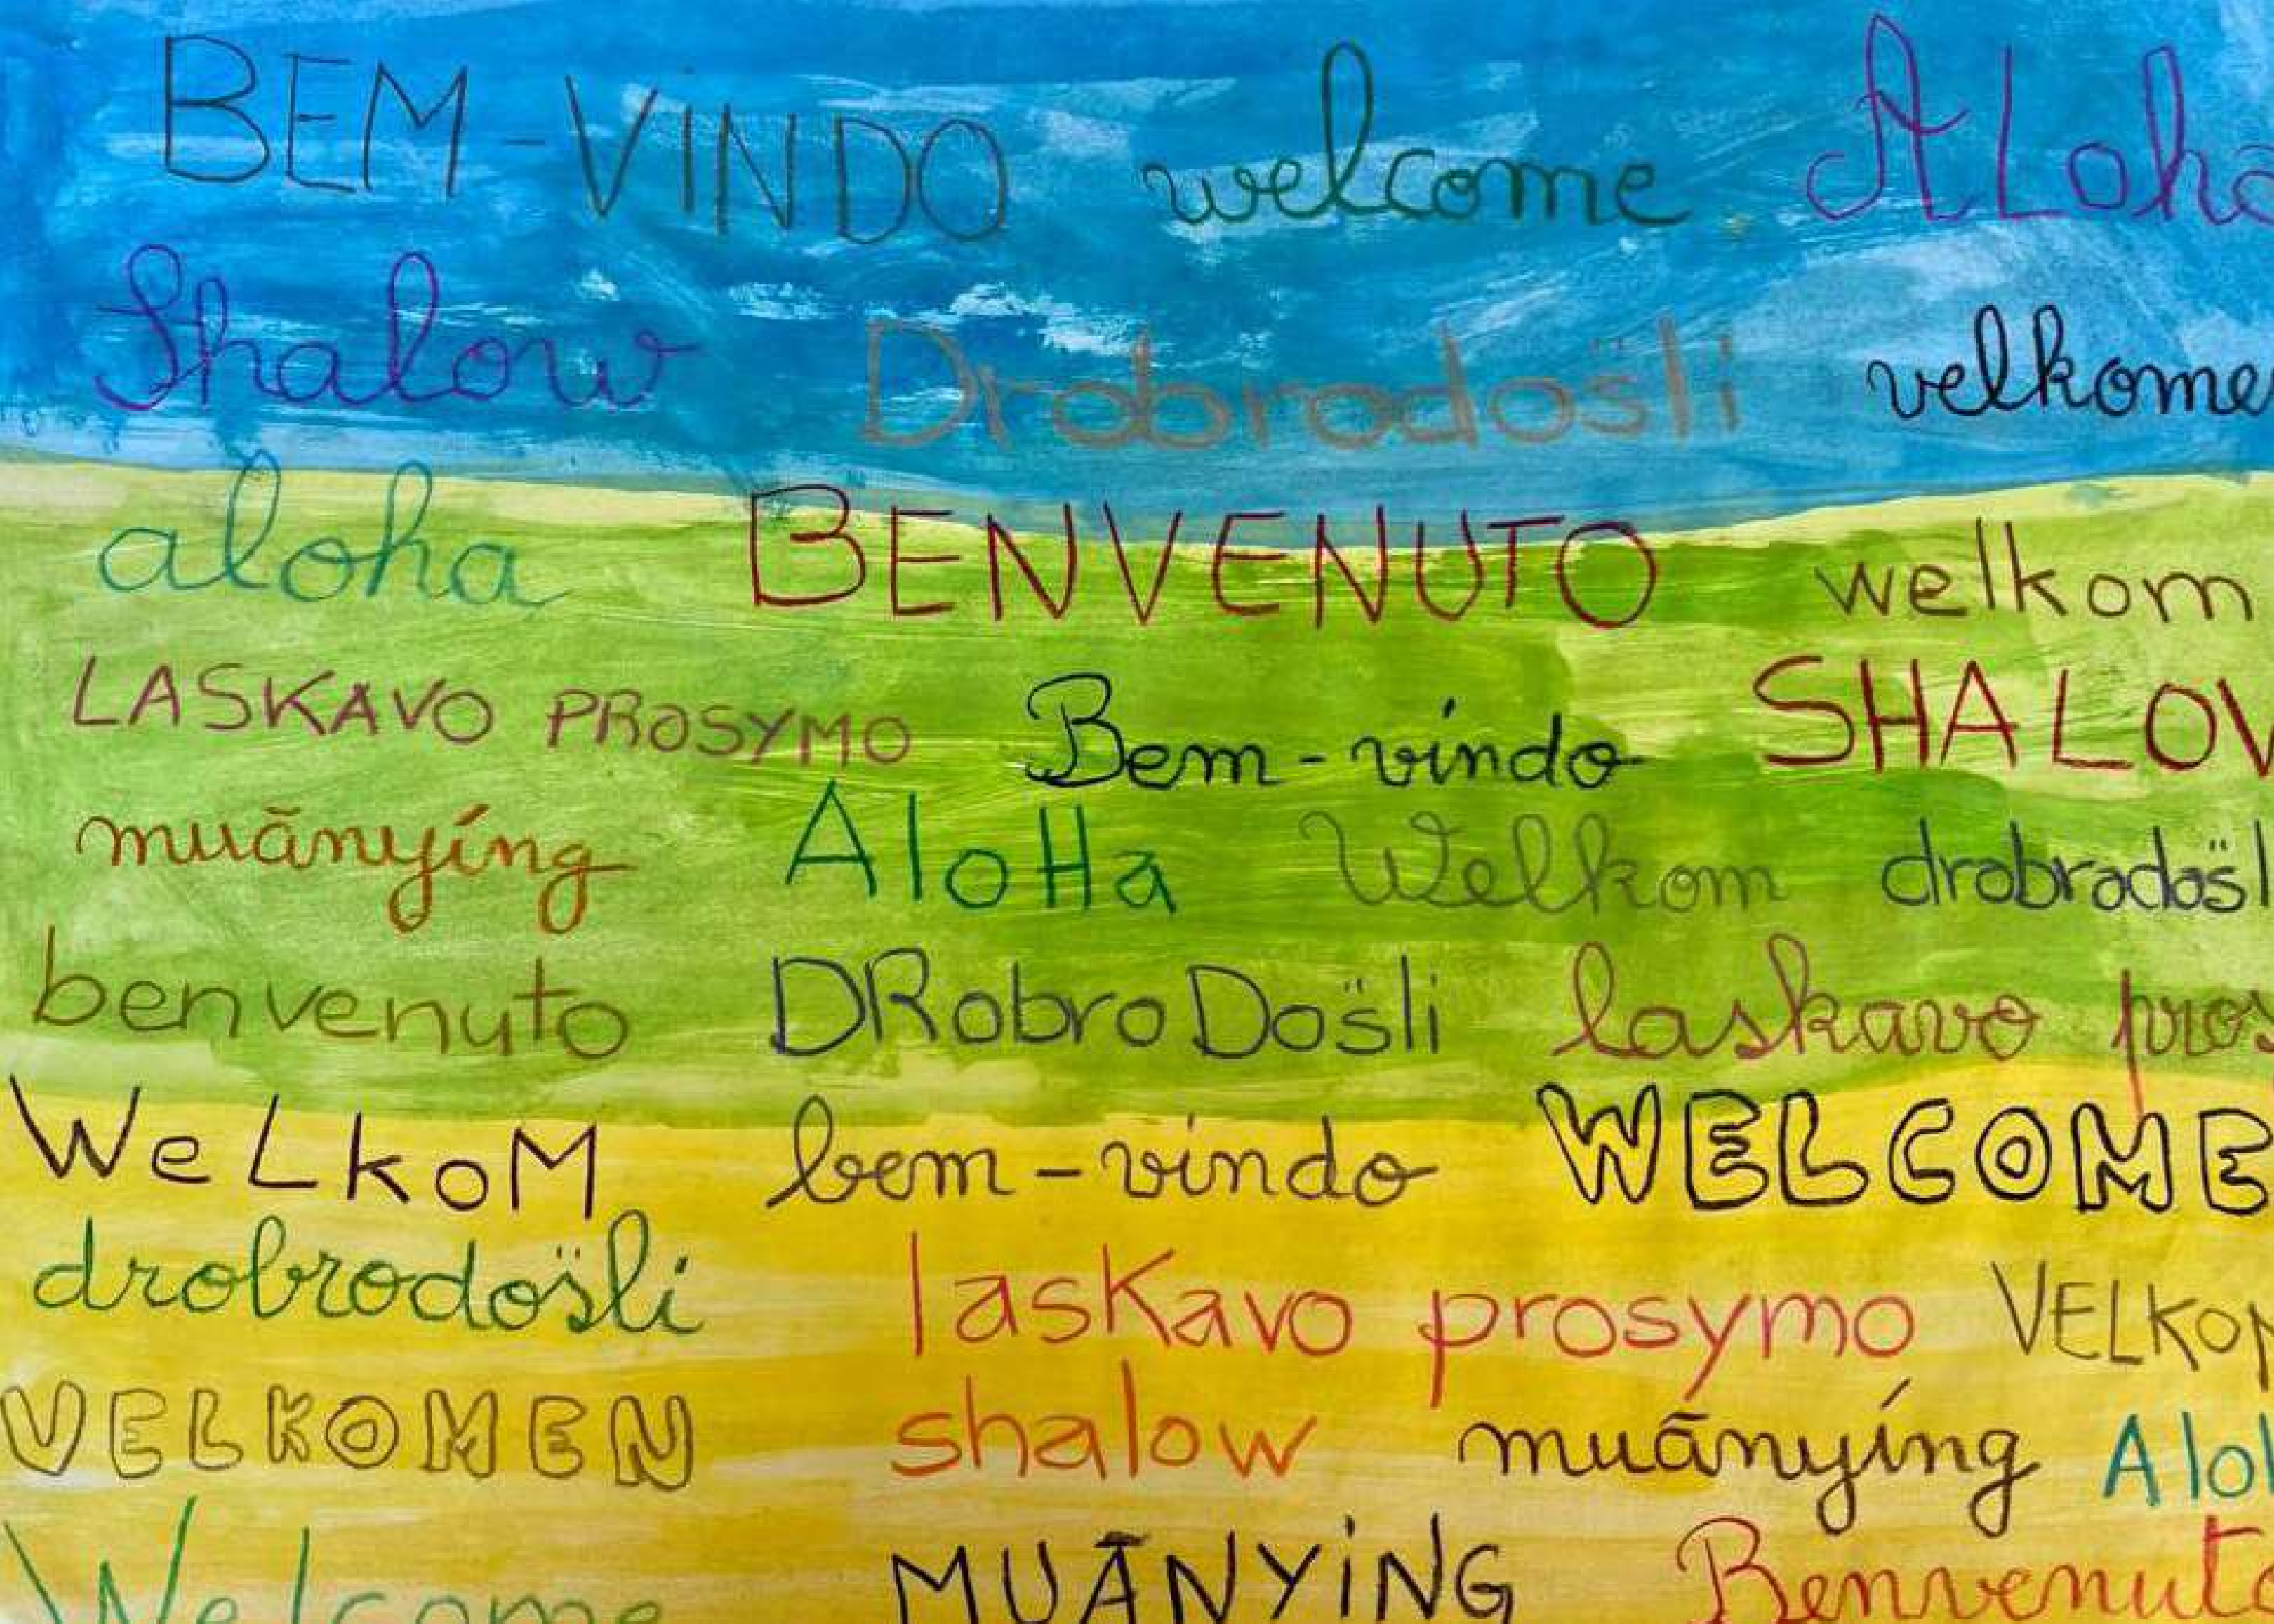 BEM-VINDO welcome ALoha
Shalow Drobrodösli velkome
aloha BENVENUTO welkom
LASKAVO PROSYMO Bem-vindo SHALOW
muānyíng AloHa Welkom drobrodösl
benvenuto DRobroDösli laskavo pros
WeLkoM bem-vindo WELCOME
drobrodösli lasKavo prosymo VELKOM
VELKOMEN shalow muānyíng Aloh
Welcome MUĀNYING Benvenuto